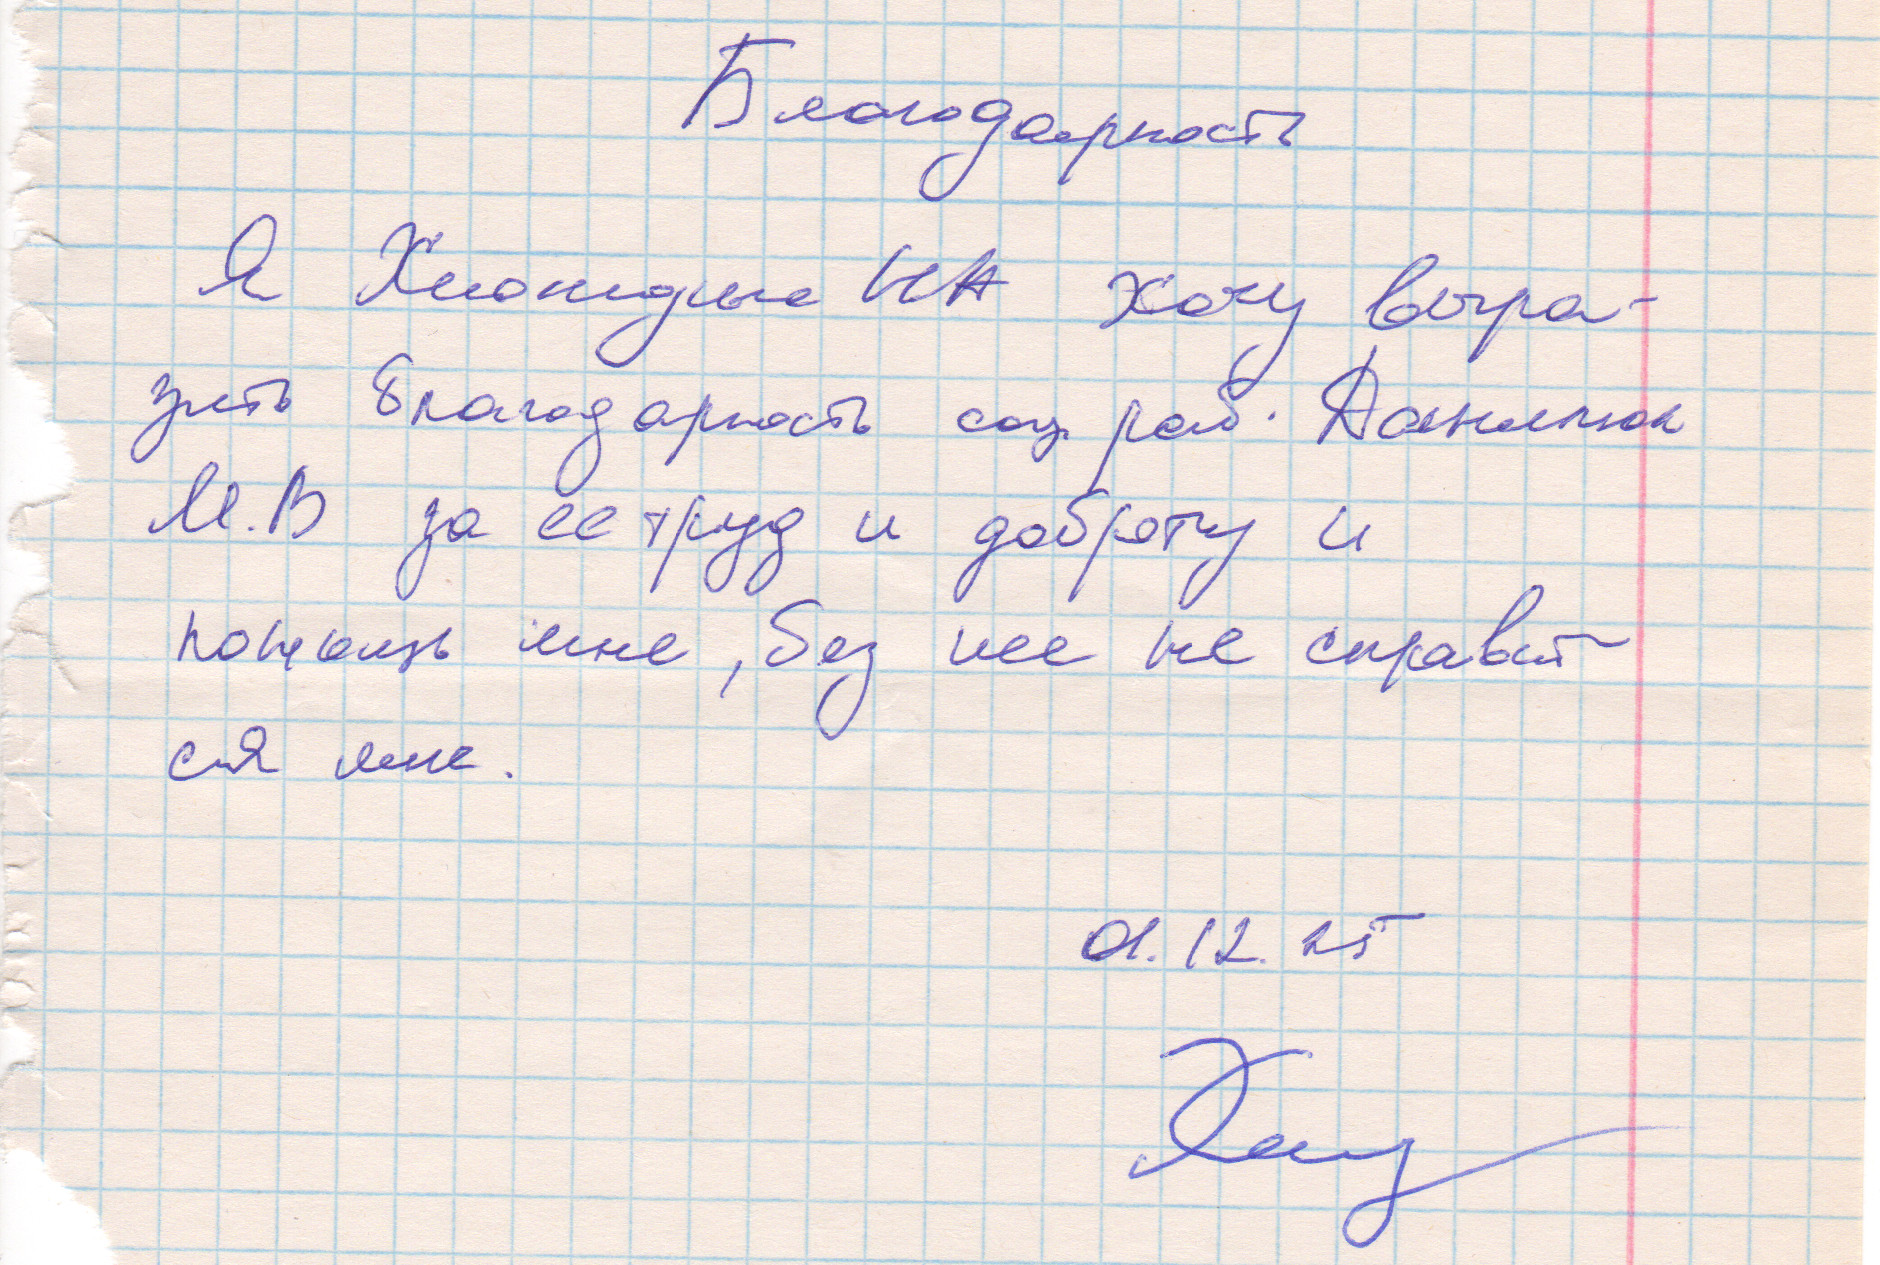 Благодарность
Я НА хочу выра-
зить благодарность соц. раб. Данилюк
М.В за ее труд и доброту и
помощь мне, без нее не справит
ся мне.
01.12.25